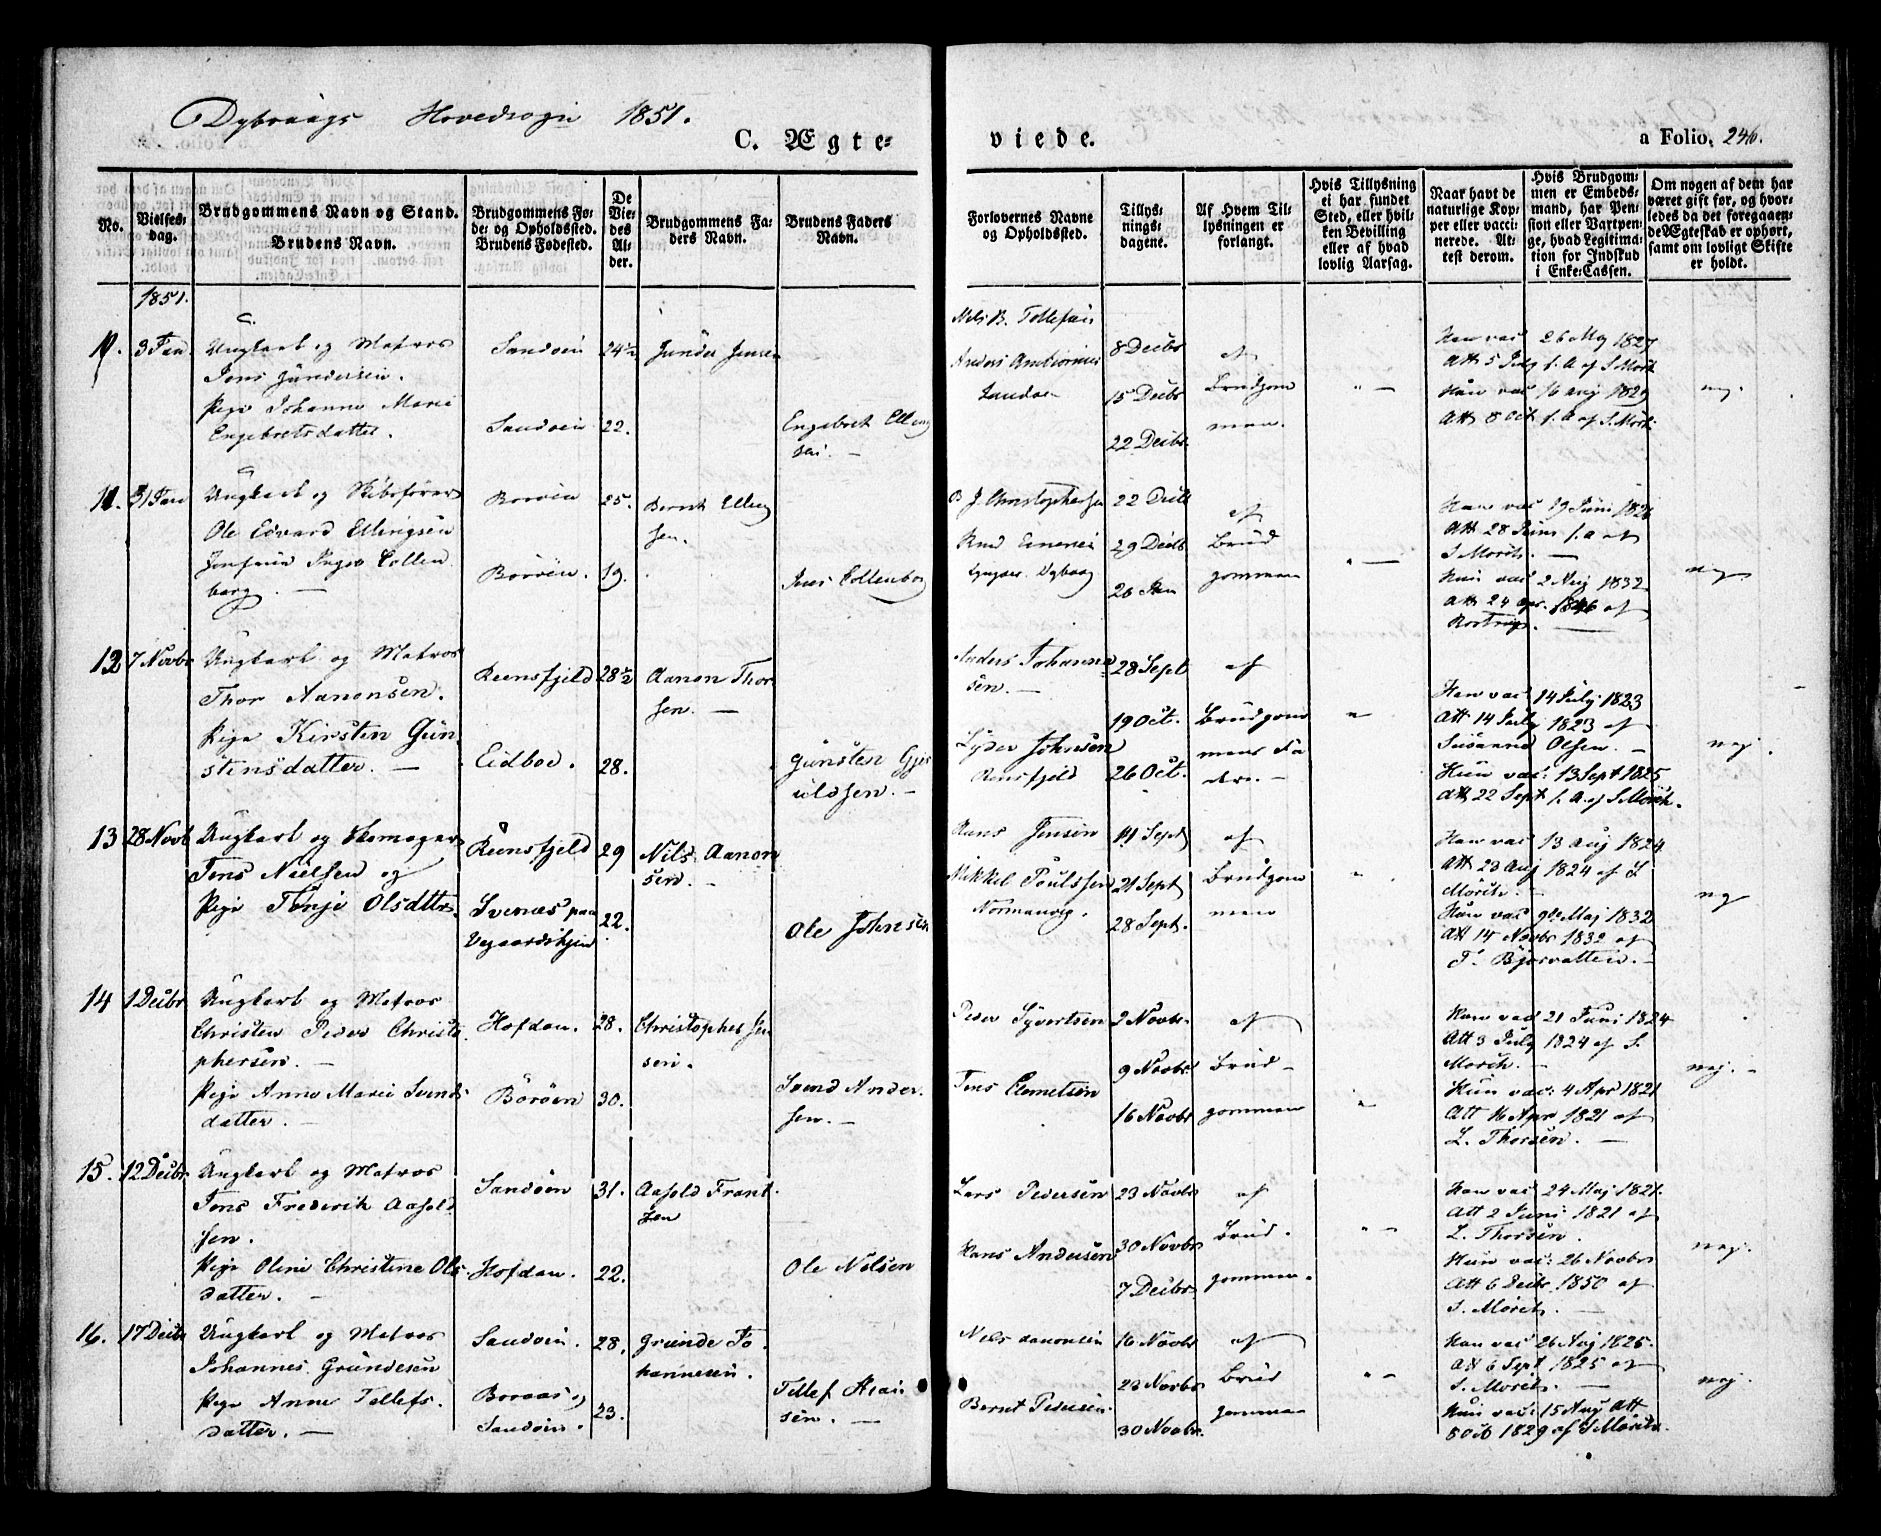 Dybvaags Hovedsogn 1851.
C. Ægte-
viede.
a Folio. 246.
No.
Vielses-dag.
Brudgommens Navn og Stand. Brudens Navn.
Brudgommens Fø-de- og Opholdssted. Brudens Fødested.
De Vie-des Al-der.
Brudgommens Fa-ders Navn.
Brudens Faders Navn.
Forlovernes Navne og Opholdssted.
Tillys-nings-dagene.
Af Hvem Til-lysningen er forlangt.
Hvis Tillysning ei har fundet Sted, eller hvil-ken Bevilling eller af hvad lovlig Aarsag.
Naar havt de naturlige Kop-per eller vacci-nerede. At-test derom.
Hvis Brudgom-men er Embeds-mand, har Pen-sion eller Vartpen-ge, hvad Legitima-tion for Indskud i Enke-Cassen.
Om nogen af dem har været gift før, og hvor-ledes da det foregaaen-de Ægteskab er ophørt, samt om lovligt Skifte er holdt.
1851.
3 Jan.
Ungkarl og Matros
Jens Gundersen.
Pige Johanne Marie
Engebretsdatter.
Sandøen
24½
Sandøen
22.
Gunder Jensen
Engebret Elling
sen. —
Nils B. Tellefsen
Sandøe
8 Decbr
15 Decbr
22 Decbr
af
Brudgom
men.
" —
Han vac 26 May 1827
Att 5 July s. A af S Morth
Hun vac 16 Aug 1829
Att 8 Oct s. A af S. Morth
nej.
11.
31 Jan
Ungkarl og Skibsfører
Ole Edvard Ellingsen
Collen
berg. —
Borøen
25.
Borøen.
19.
Bernt Elling
sen.
Jens Collenberg
B J. Christophersen
22 Decb
29 Decb
26 Jan
af
Brud
gommen
" —
Han vac 19 Juni 1826
Att 28 Juni s. a af
S Morth. —
Hun vac 2 Aug 1832
Att 24 Apr. 1846 af
nej.
12
7 Novbr
Ungkarl og Matros
Thor Aanonsen.
Pige Kirsten Gun
stensdatter. —
Reensfjeld
28½
Eidboe.
28.
Aanon Thor
sen. —
Gunsten Gjer
uldsen. —
Anders Johanne
sen. —
Lyder Johnsen
Rensfjeld
28 Sept
19 Oct.
26 Oct.
af
Brudgom
mens Fa
der. —
"
Han vac 14 July 1823
Att 14 July 1823 af
Susanne Olsen. —
Hun vac: 13 Sept 1825
Att 22 Sept s. A. af S. Morth.
nej.
13
28 Novb
Ungkarl og Skomager
Jens Nielsen og
Pige Tonje Olsdttr.
Reensfjeld
29
Svenæs paa
Vegaardshjen
22.
Nils Aanon
sen. —
Ole Johnsen
Hans Jensen
Mikkel Poulssen
14 Sept
21 Sept
28 Sept.
af
Brudgom
men
"
Han vac 13 Aug 1824
Att 23 Aug 1824 af S
Morth. —
Hun vac 9de Maj 1832
Att 14 Novbr 1832 af
T. Bjorvatten. —
nej
14
1 Decbr
Ungkarl og Matros
Christen Peder Christo
phersen. —
Pige Anne Marie Svends
datter. —
Hofdan.
28.
Borøen
30.
Christopher Jen
sen.
Svend Ander-
sen. —
Peder Syvertsen
Jens Clemetsen
2 Novbr.
9 Novbr
16 Novbr
af
Brud-
gommen
"
Han vac 21 Juni 1824
Att 3 July 1824 af S.
Morth. —
Hun vac: 4 Apr 1821
Att 16 Apr 1821 af
L. Thorsen. —
nej. —
15.
12 Decbr
Ungkarl og Matros
Jens Frederik Aasold
sen.
Pige Oline Christine Ols
datter. —
Sandøen
31.
Hofdan.
22.
Aasold Frant
sen
Ole Nilsen
Lars Pedersen
Hans Andersen
23 Novbr
30 Novbr
7 Decbr
af
Brud.
gommen.
" —
Han vac 24 Maj 1821.
Att 2 Juni 1821 af
L. Thorsen. —
Hun vac: 26 Novbr
Att 6 Decbr 1850 af
S. Morth. —
nej.
16.
17 Decbr
Ungkarl og Matros
Johannes Grundesen
Pige Anne Tellefs.
datter. —
Sandøen.
28.
Boraas og
Sandøen.
23.
Grunde Jo.
hannesen.
Tellef Asai
sen. —
Nils Aanonsen
Bernt Pedersen.
16 Novbr
23 Novbr
30 Novbr.
af
Brud
gommen
" —
Han vac 26 Aug 1825.
Att 6 Sept 1825 af
S. Morth. —
Hun vac: 15 Aug Att
8 Oct 1829 af S Morth.
nej.